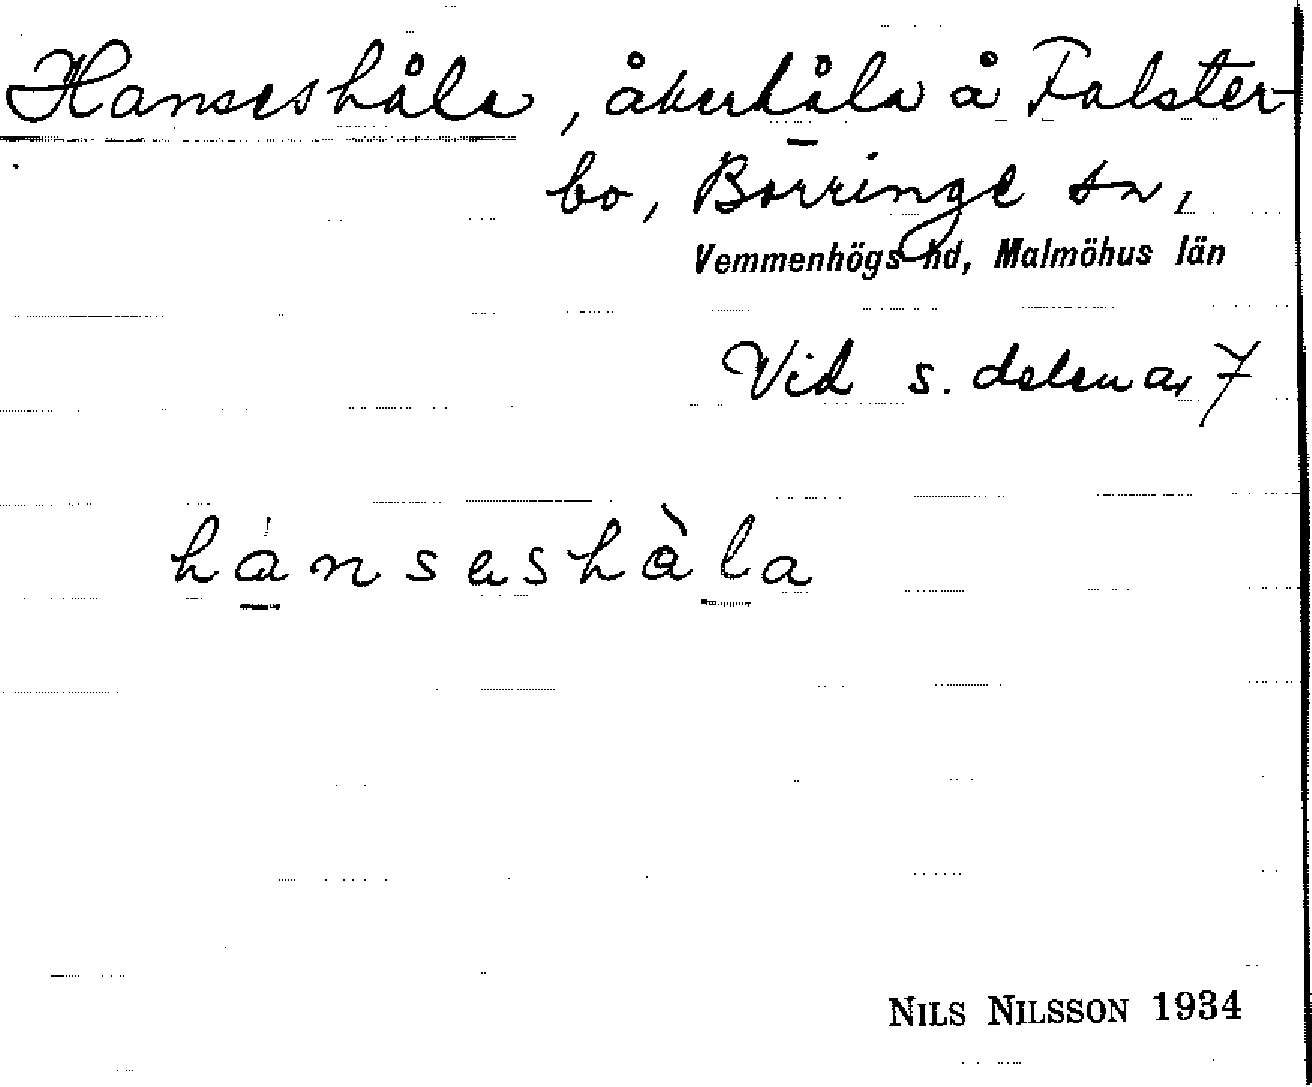 Hanseshåla, åkerhåla å Falster-
bo, Börringe sn,
Vemmenhögs hd, Malmöhus län
Vid s. delen av 7
hánsɐshàla
NILS NILSSON 1934